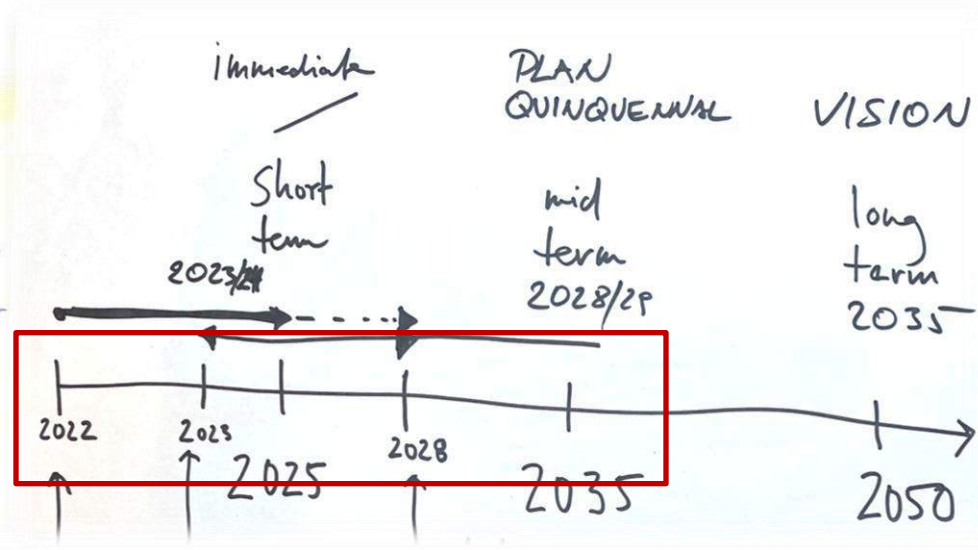 immediate
PLAN
QUINQUENNAL
VISION
Short
term
2023/24
mid
term
2028/29
long
term
2035
2022
2023
2025
2028
2035
2050